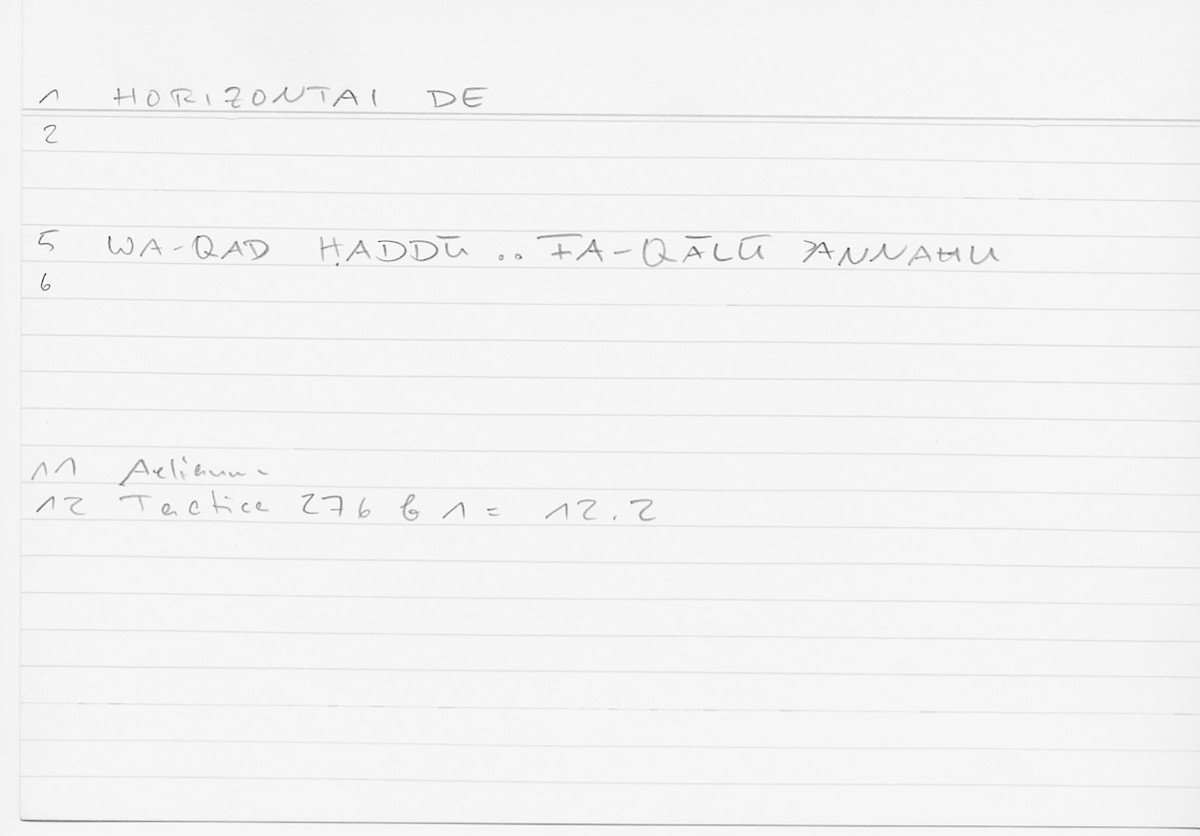 1 HORIZONTAI DE
2
5 WA-QAD ḤADDŪ .. FA-QĀLŪ ʾANNAHU
6
11 Aelianus
12 Tactica 276 b 1 = 12.2